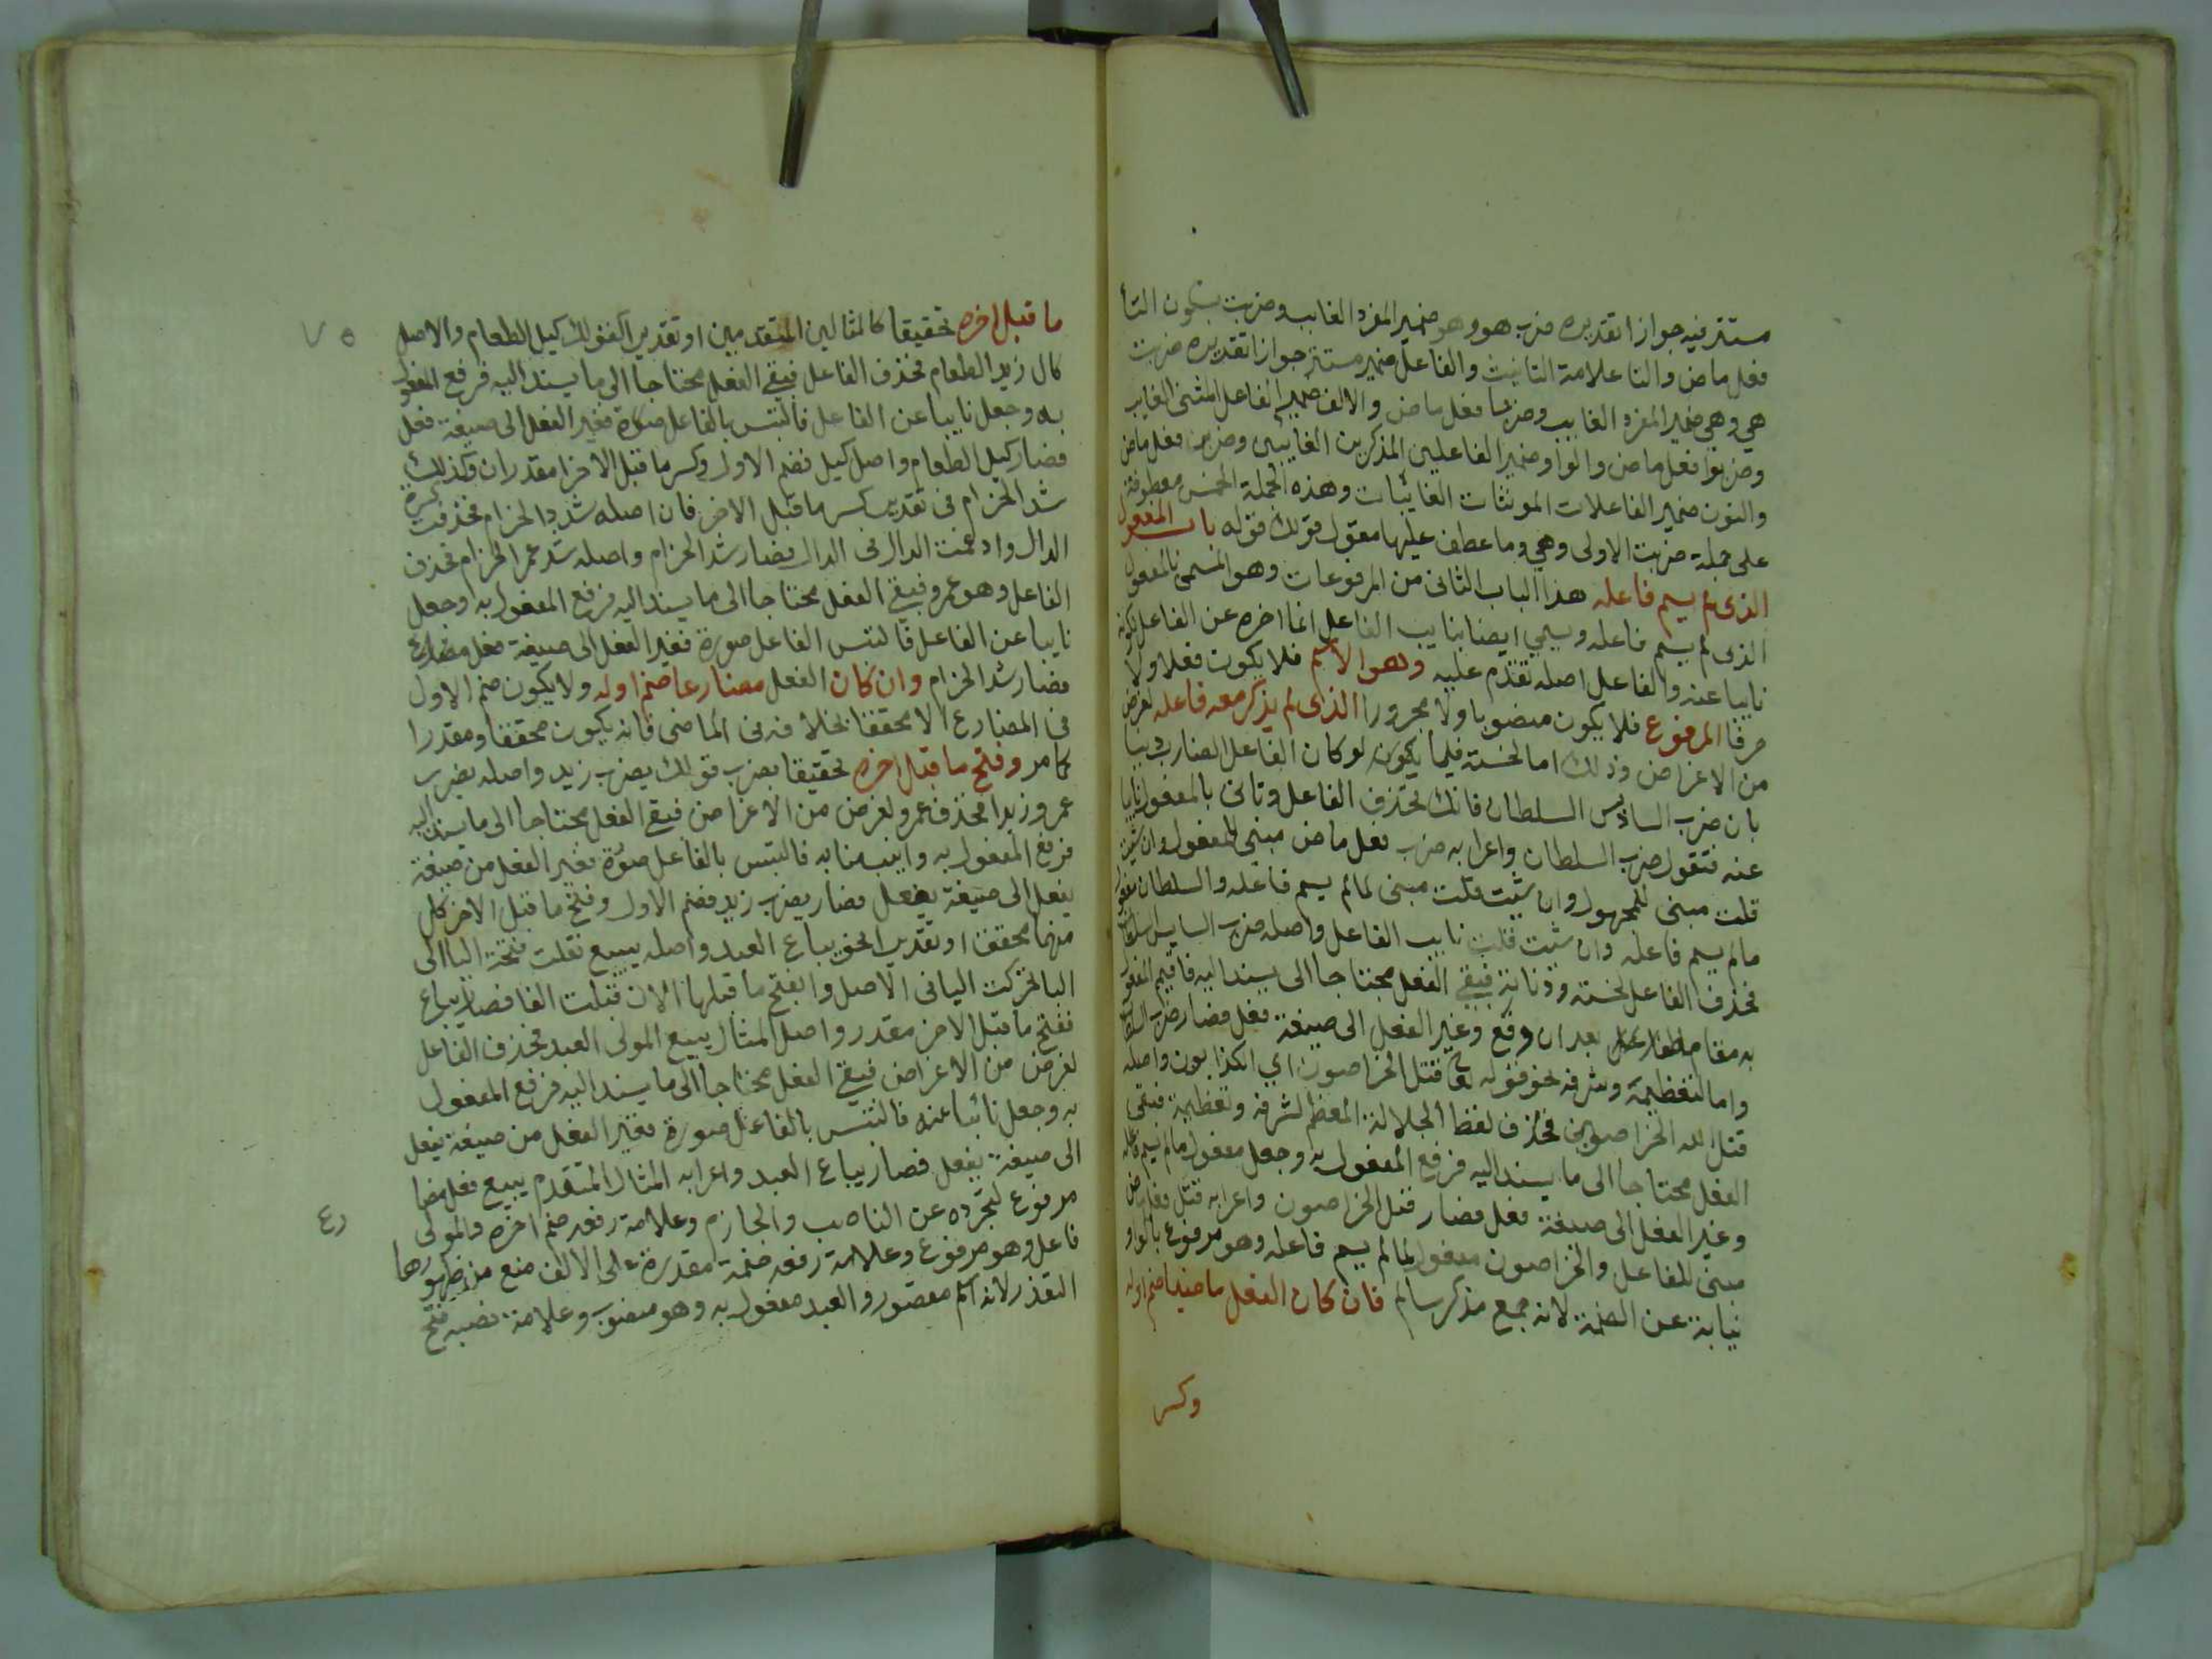 مستتر فيه جوازا تقديره ضرب هو وهو ضمير المفرد الغايب وضربت بسكون التا
فعل ماض والتا علامة التانيث والفاعل ضمير مستتر جوازا تقديره ضربت
هي وهي ضمير المفرد الغايب وضربا فعل ماض والالف ضمير الفاعل المثنى الغايب
وضربوا فعل ماض والواو ضمير الفاعلين المذكرين الغايبين وضربن فعل ماض
والنون ضمير الفاعلات المونثات الغائبات وهذه الجملة الخمس معطوفة
على جملة ضربت الاولى وهي وما عطف عليها مقول قولك قوله باب المفعول
الذى لم يسم فاعله هذا الباب الثانى من المرفوعات وهو المسمى بالمفعول
الذى لم يسم فاعله ويسمي ايضا بنايب الفاعل انما اخره عن الفاعل لكونه
نايبا عنه والفاعل اصله تقدم عليه وهو الاسم فلا يكون فعلا ولا
حرفا المرفوع فلا يكون منصوبا ولا مجرورا الذى لم يذكر معه فاعله لغرض
من الاغراض وذلك اما لخسته فيما يكون لو كان الفاعل الضارب دنيا
بان ضرب السايس السلطان فانك تحذف الفاعل وتاتى بالمفعول نايبا
عنه فتقول ضرب السلطان واعرابه ضرب فعل ماض مبنى للمفعول وان شيت
قلت مبنى للمجهول وان شيت قلت مبنى لما لم يسم فاعله والسلطان مفعول
مالم يسم فاعله وان شيت قلت نايب الفاعل واصله ضرب السايس السلطان
فحذف الفاعل لخسته ودنايته فبقى الفعل محتاجا الى يسند اليه فاقيم المفعول
به مقام الفاعل بعد ان رفع وغير الفعل الى صيغة فعل فصار ضرب السلطان
واما لتعظيمه وشرفه نحو قوله تعالى قتل الخراصون اي الكذابون واصله
قتل الله الخراصين فحذف لفظ الجلالة المعظم لشرفه وتعظيمه فبقى
الفعل محتاجا الى ما يسند اليه فرفع المفعول به وجعل مفعول مالم يسم فاعله
وغير الفعل الى صيغة فعل فصار قتل الخراصون واعرابه قتل فعل ماض
مبنى للفاعل والخراصون مفعول لما لم يسم فاعله وهو مرفوع بالواو
نيابة عن الضمة لانه جمع مذكر سالم فان كان الفعل ماضيا ضم اوله
وكسر
ما قبل اخره تحقيقا كالمثالين المتقدمين او تقديرا كقولك كيل الطعام والاصل
كال زيد الطعام فحذف الفاعل فبقى الفعل محتاجا الى ما يسند اليه فرفع المفعول
به وجعل نايبا عن الفاعل فالتبس بالفاعل صورة فغير الفعل الى صيغة فعل
فصار كيل الطعام واصل كيل فضم الاول وكسر ما قبل الاخر مقدران وكذلك
شد الحزام فى تقدير كسر ما قبل الاخر فان اصله شدد الحزام فحذفت كسرة
الدال وادغمت الدال فى الدال فصار شد الحزام واصله شد عمر الحزام فحذف
الفاعل وهو عمرو فبقى الفعل محتاجا الى ما يسند اليه فرفع المفعول به وجعل
نايبا عن الفاعل فالتبس الفاعل صورة فغير الفعل الى صيغة فعل مضارع
فصار شد الحزام وان كان الفعل مضارعا ضم اوله ولا يكون ضم الاول
فى المضارع الا محققا بخلافه فى الماضى فانه يكون محققا ومقدرا
كما مر وفتح ما قبل اخره تحقيقا بضرب قولك يضرب زيد واصله يضرب
عمرو زيدا فحذف عمرو لغرض من الاغراض فبقى الفعل محتاجا الى ما يسند اليه
فرفع المفعول به وانيب منابه فالتبس بالفاعل صورة فغير الفعل من صيغة
يفعل الى صيغة يفعل فصار يضرب زيد فضم الاول وفتح ما قبل الاخر كل
منهما محققا او تقديرا نحو يباع العبد واصله يبيع نقلت فتحة اليا الى
البا تحركت اليا فى الاصل وانفتح ما قبلها الان قبلت الفا فصار يباع
ففتح ما قبل الاخر مقدر واصل المثال يبيع المولى العبد فحذف الفاعل
لغرض من الاغراض فبقى الفعل محتاجا الى ما يسند اليه فرفع المفعول
به وجعل نائبا عنه فالتبس بالفاعل صورة فغير الفعل من صيغة يفعل
الى صيغة يفعل فصار يباع العبد واعرابه المثال المتقدم يبيع فعل مضا
رع مرفوع لتجرده عن الناصب والجازم وعلامة رفعه ضم اخره والمولى
فاعل وهو مرفوع وعلامة رفعه ضمة مقدرة على الالف منع من ظهورها
التعذر لانه اسم مقصور والعبد مفعول به وهو منصوب وعلامة نصبه فتح
٧٥